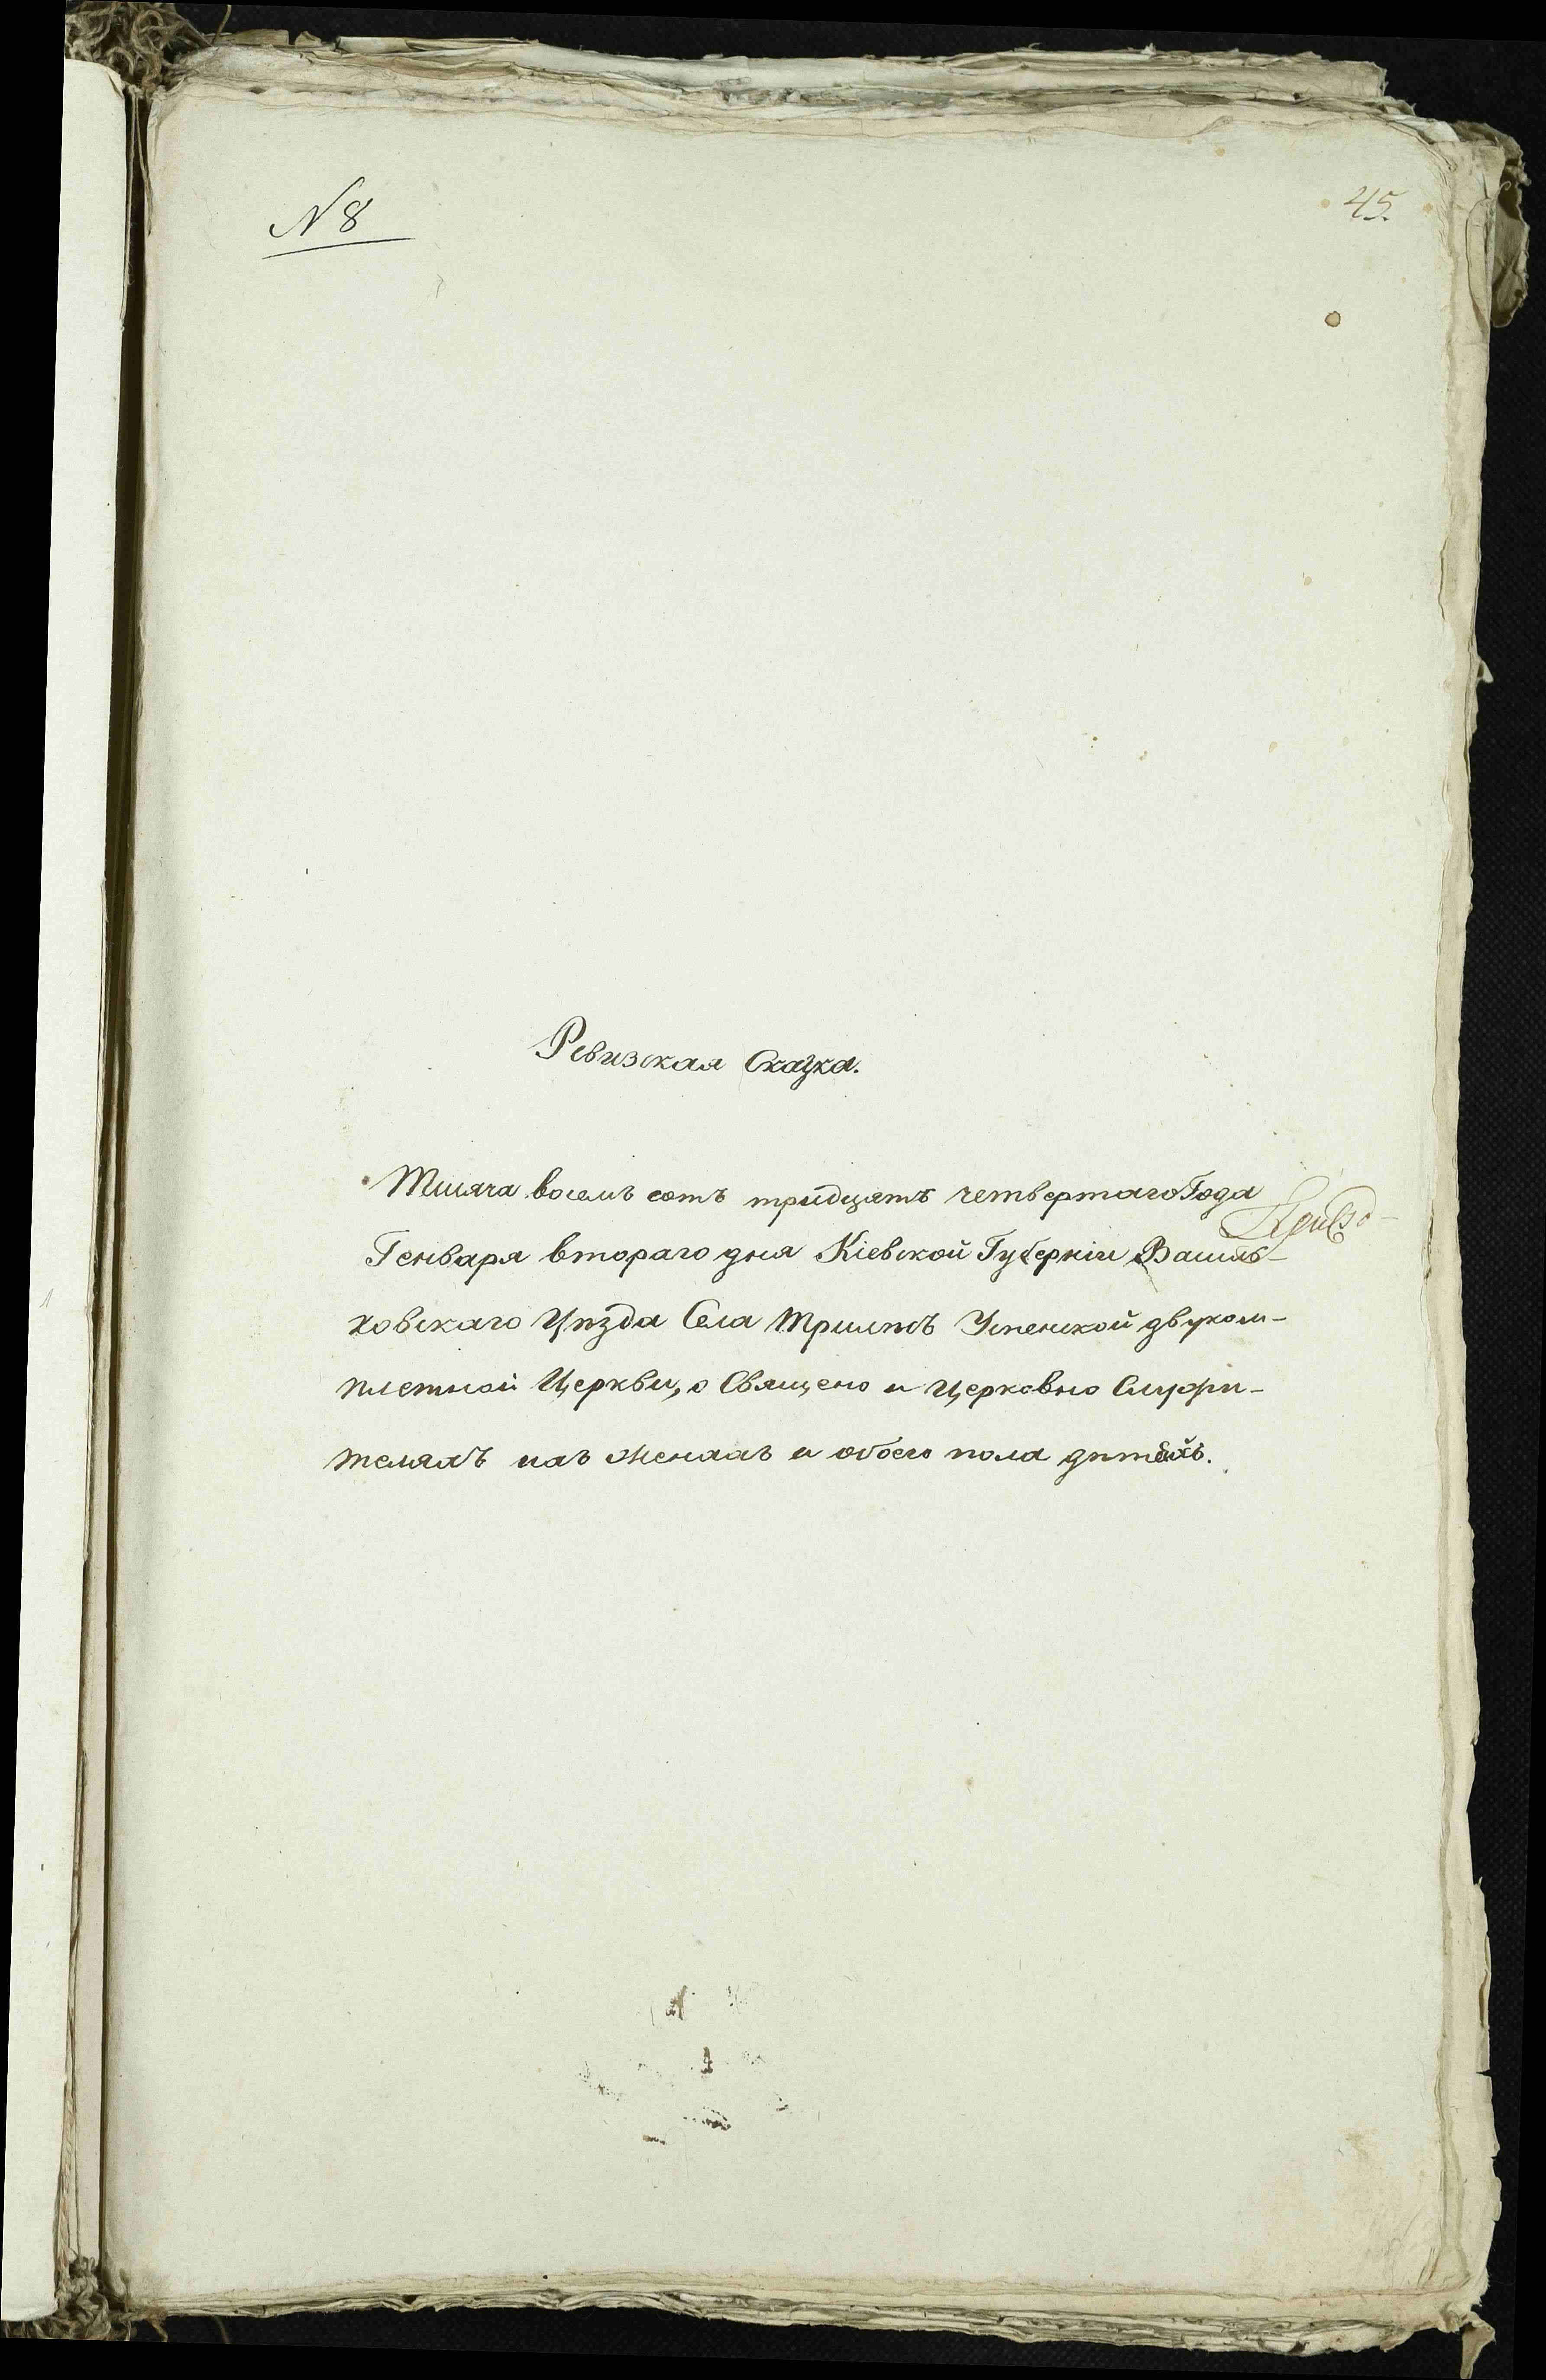 N 8
45.
Ревизская Сказка.
Тысяча восемь сотъ тридцать четвертаго Года
Генваря втораго дня Кіевской Губерніи Василь-
ковскаго Уѣзда Села Трилѣсъ Успенской двуком-
плетной Церкви, о Священо и Церковно Служи-
теляхъ ихъ женахъ и обоего пола дѣтѣхъ.